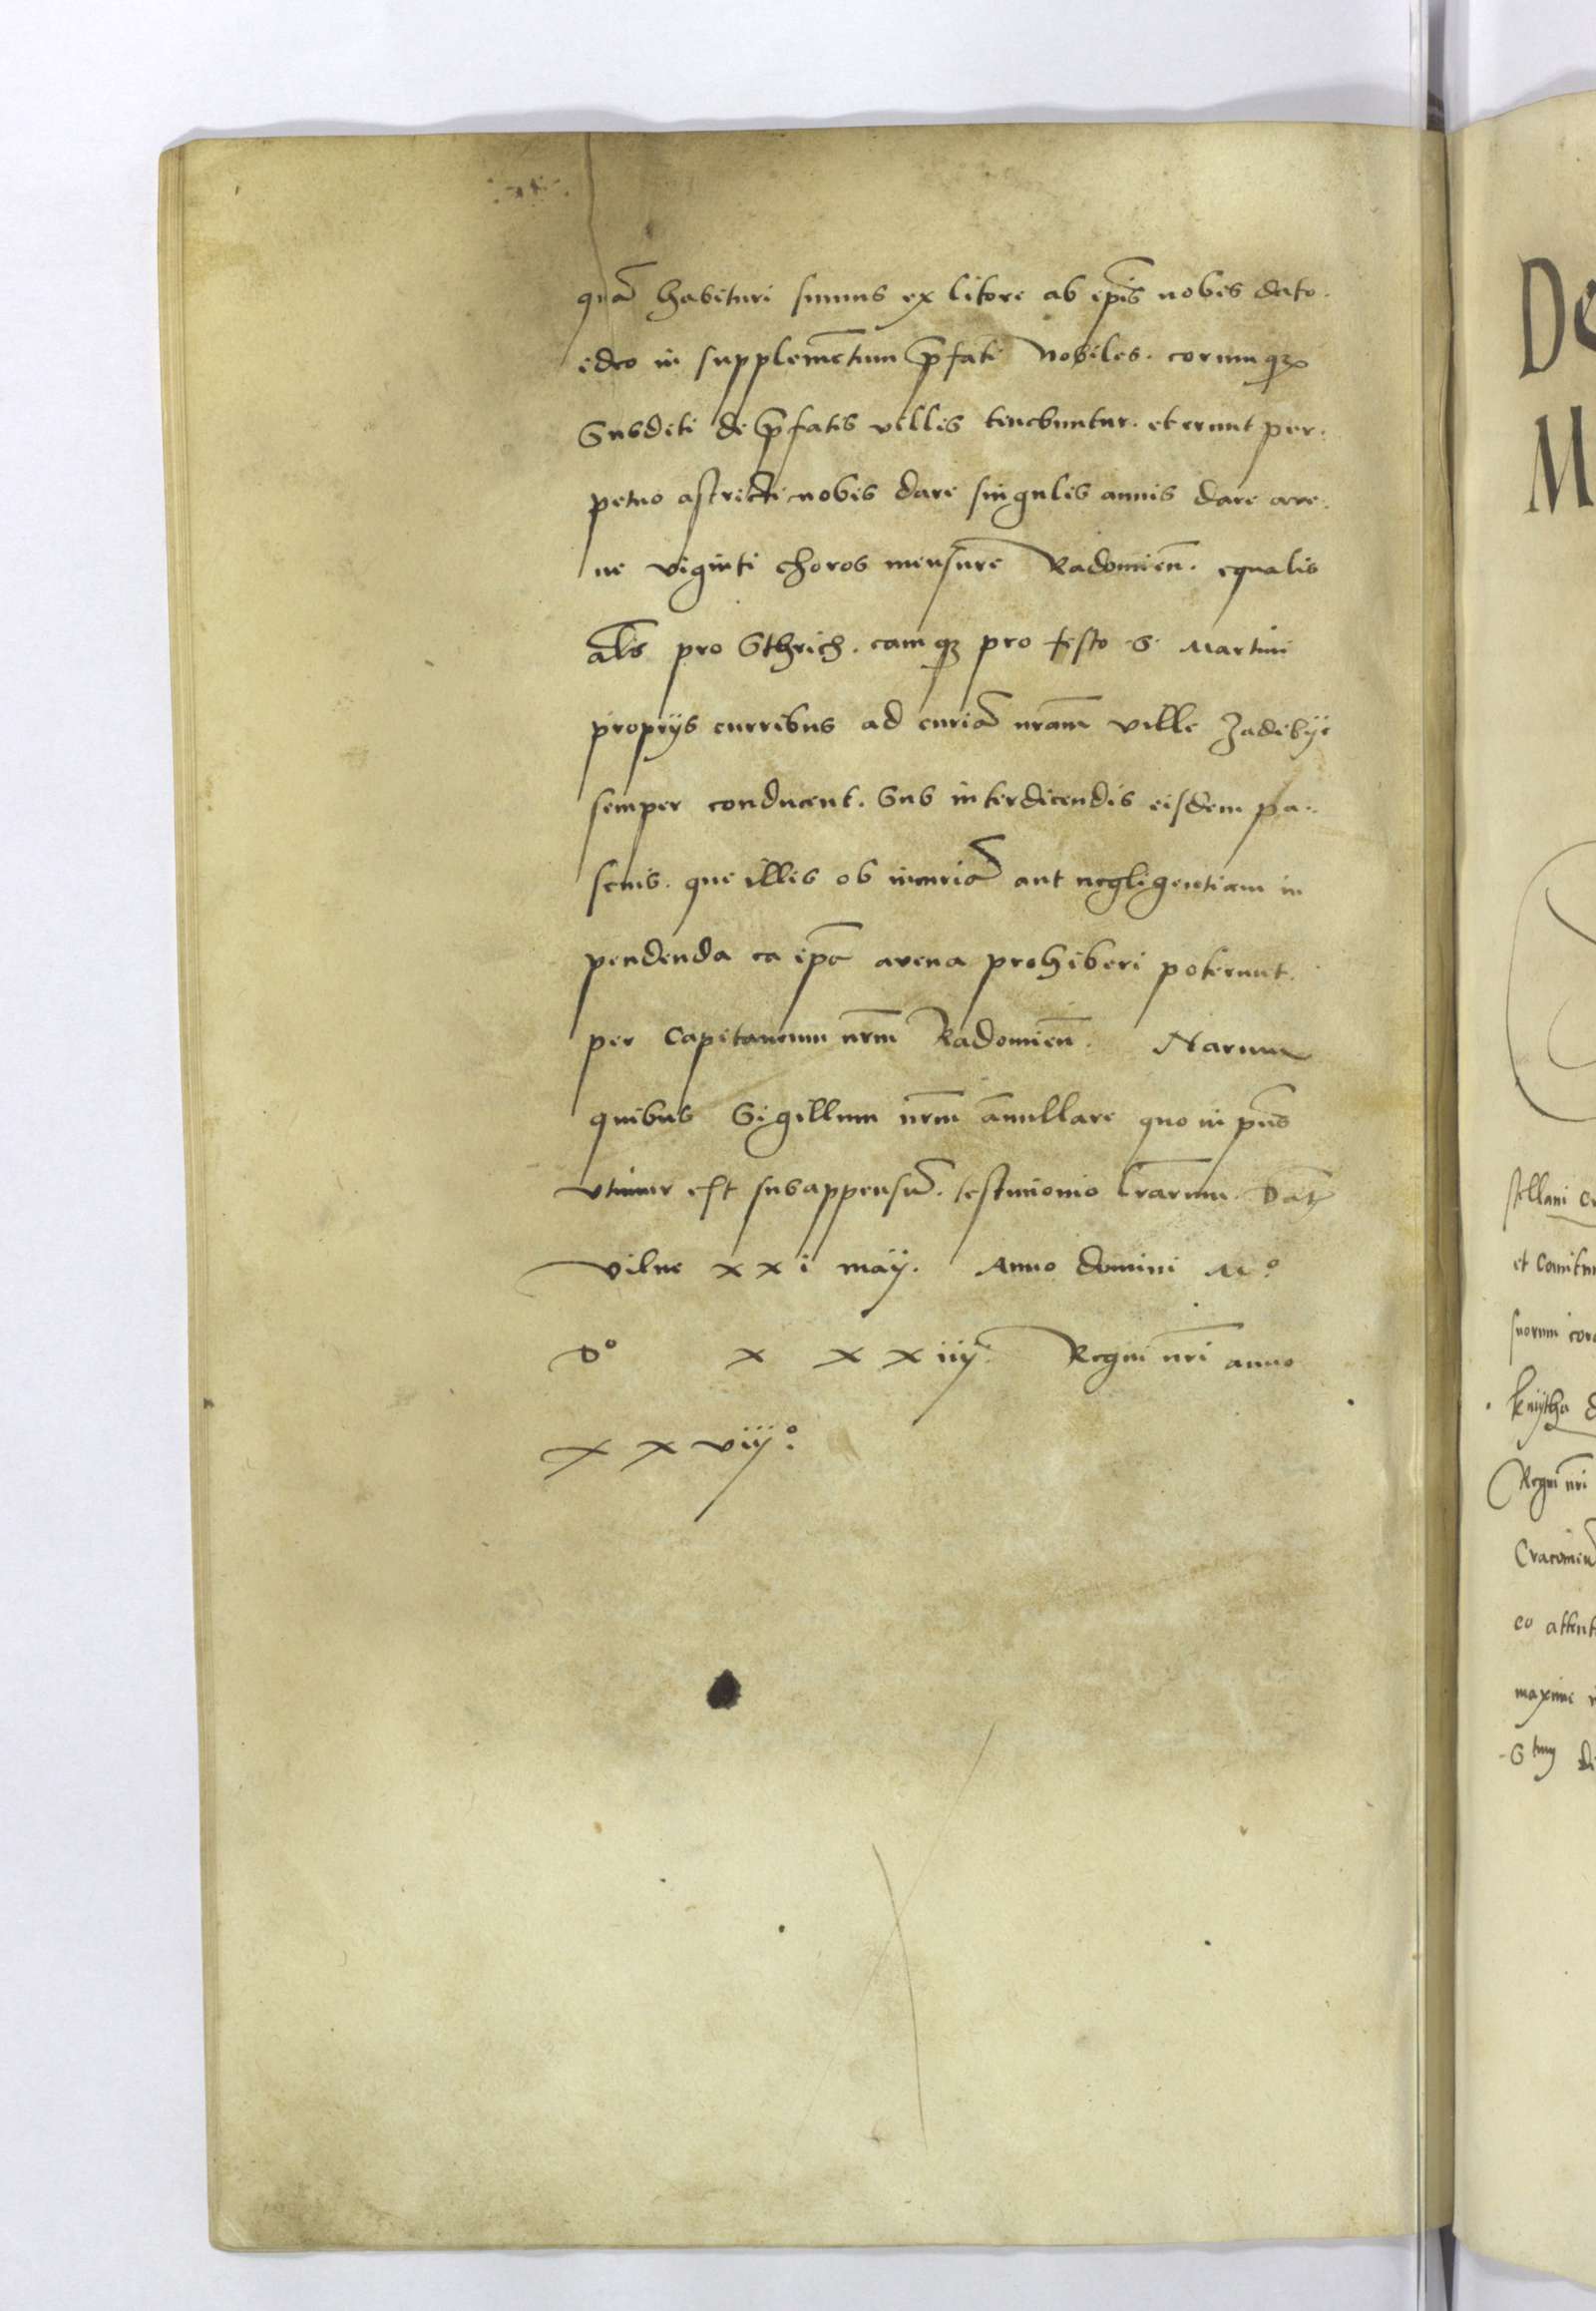 quā habituri sumus ex litore ab ip̄is nobis dato.
ideo in supplemētum p̄fati Nobiles. eorumqꝫ
Subditi de p̄fatis villis tenebuntur. et erunt per.
petuo astricti nobis dare singulis annis dare ave.
ne viginti choros mensure Radomieñ. equalis
al̄s pro Sthrich. eamqꝫ pro festo S. Martini
proprijs curribus ad curiā nr̄am ville Zadibije
semper conducent. Sub interdicendis eisdem pa.
scuis. que illis ob incuriā aut negligentiam in
pendenda ea ip̄a avena prohiberi poterunt.
per Capitaneum nr̄m Radomieñ. Harum
quibus Sigillum nr̄m an̄ullare quo in p̄ns
vtimur est subappensū. testimonio l̄rarum. Dat̄
Vilne xxi maij. Anno domini M.º
Dº x x x iiij.º Regni nr̄i anno
x x viij.º
De
M
stellani
et Comitu
suorum
kniytha
Regni nr̄i
Cracouieñ
eo attent
maxime